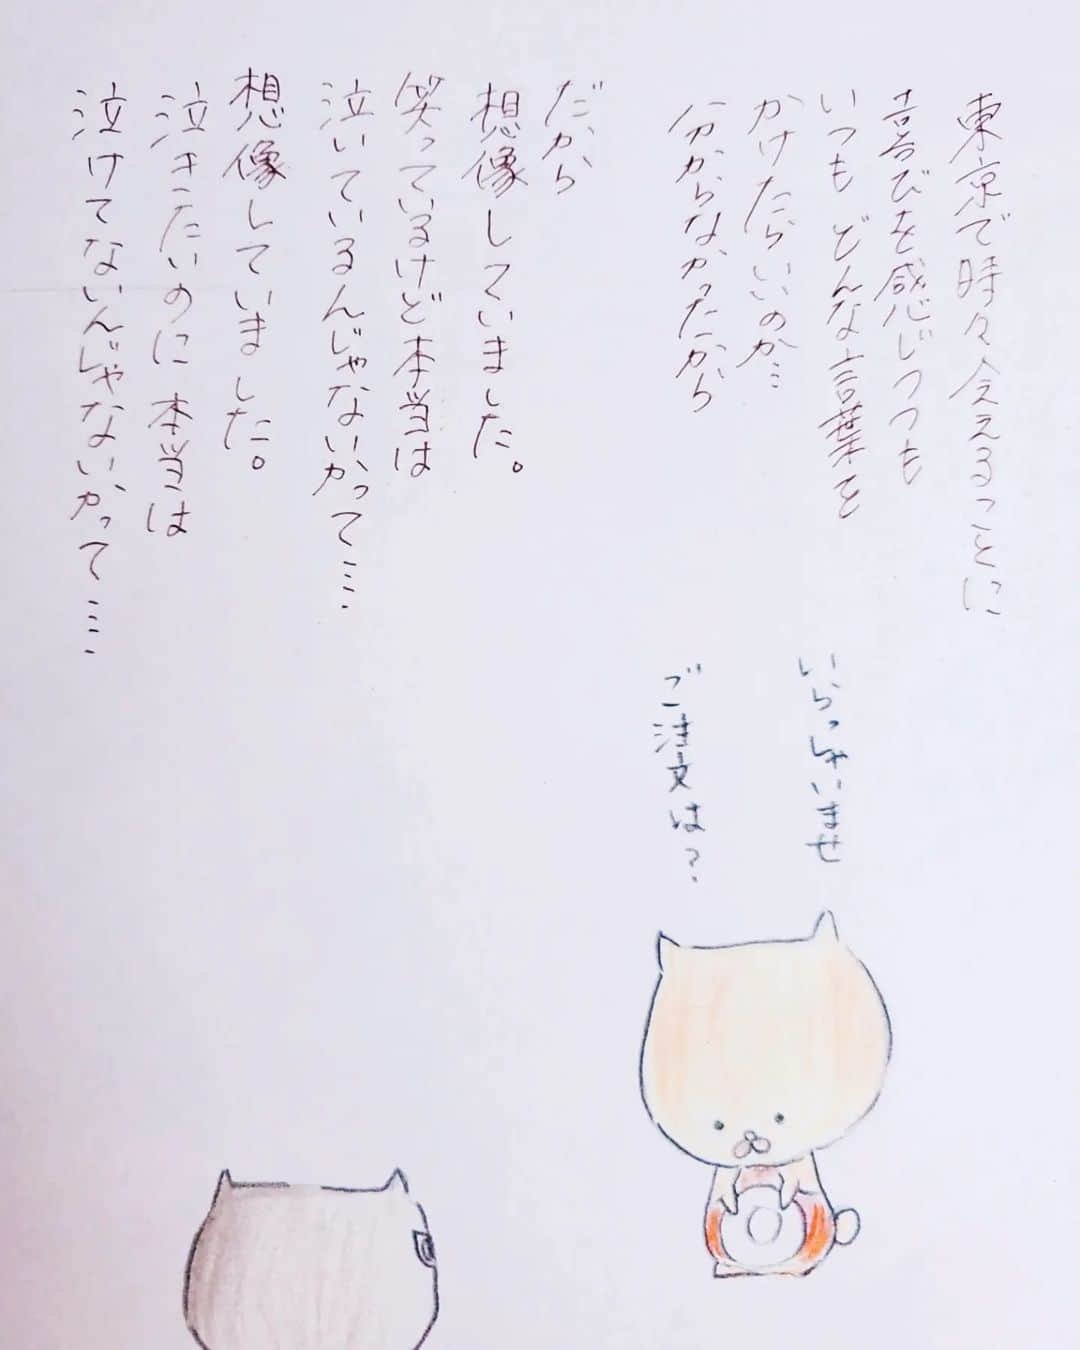 東京で時々会えることに
喜びを感じつつも
いつも どんな言葉を
かけたらいいのか…
分からなかったから
だから
想像していました。
笑っているけど本当は
泣いているんじゃないかって…
想像していました。
泣きたいのに 本当は
泣けてないんじゃないかって…
いらっしゃいませ
ご注文は?